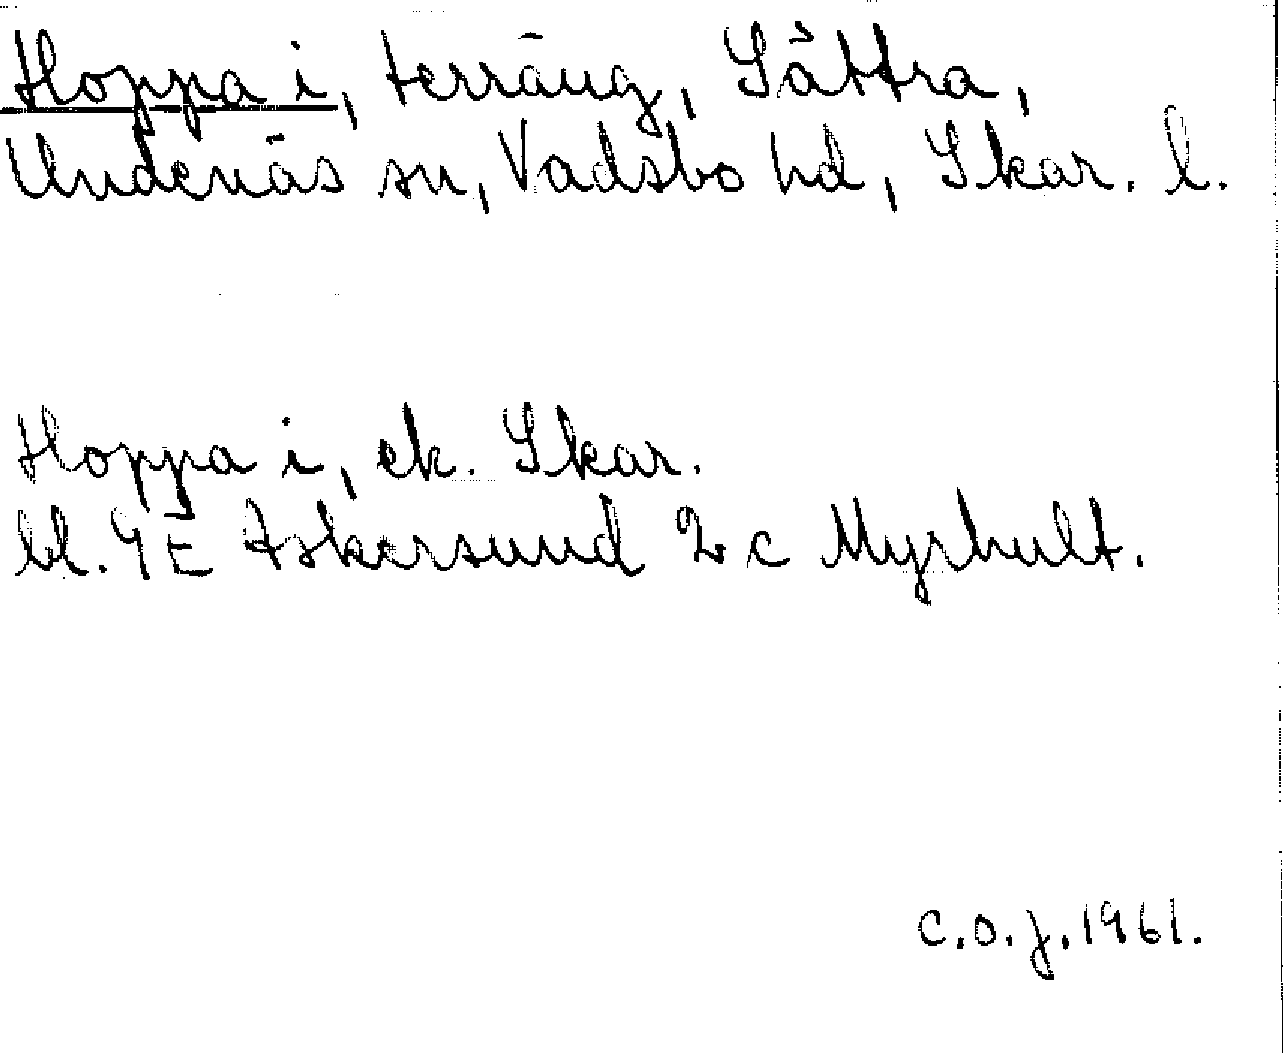 Hoppa i, terräng, Såttra,
Undenäs sn, Vadsbo hd, Skar. l.
Hoppa i, ek. Skar.
bl. 9E Askersund 2 c Myrhult.
C.O.J. 1961.